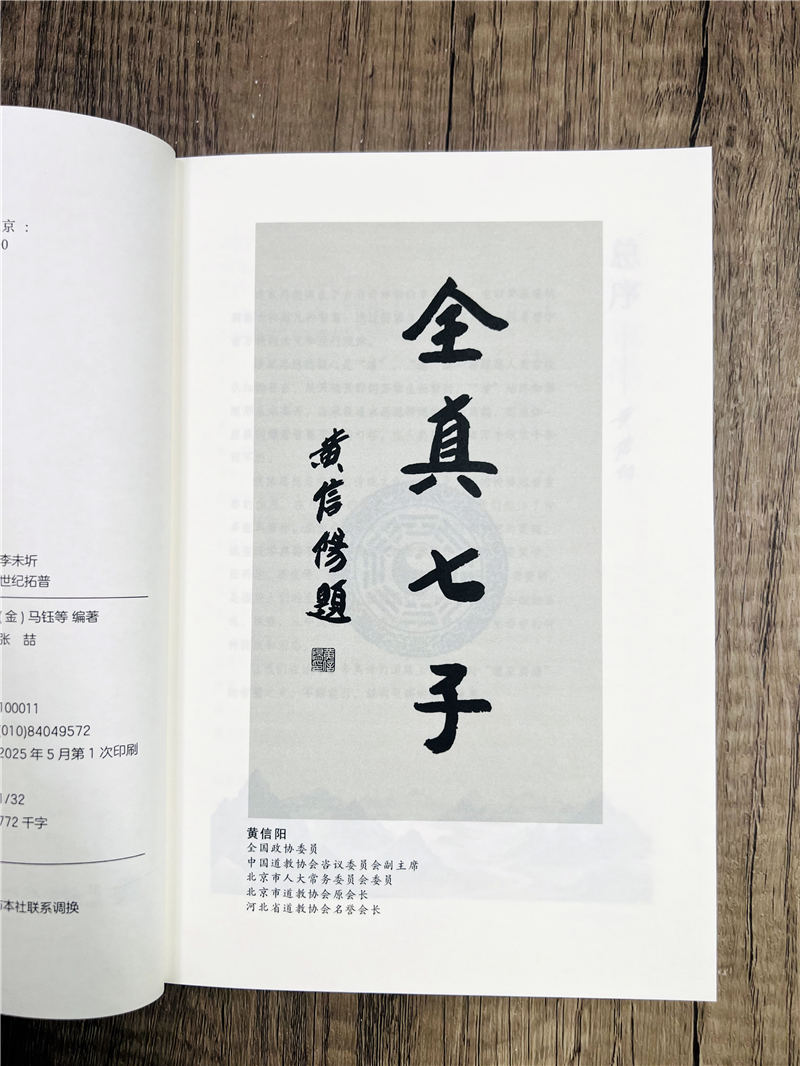 京：
0
李未圻
世纪拓普
(金)马钰等 编著
张 喆
100011
(010)84049572
2025年5月第1次印刷
1/32
772千字
本社联系调换
全真七子
黄信阳题
黄信阳
全国政协委员
中国道教协会咨议委员会副主席
北京市人大常务委员会委员
北京市道教协会原会长
河北省道教协会名誉会长